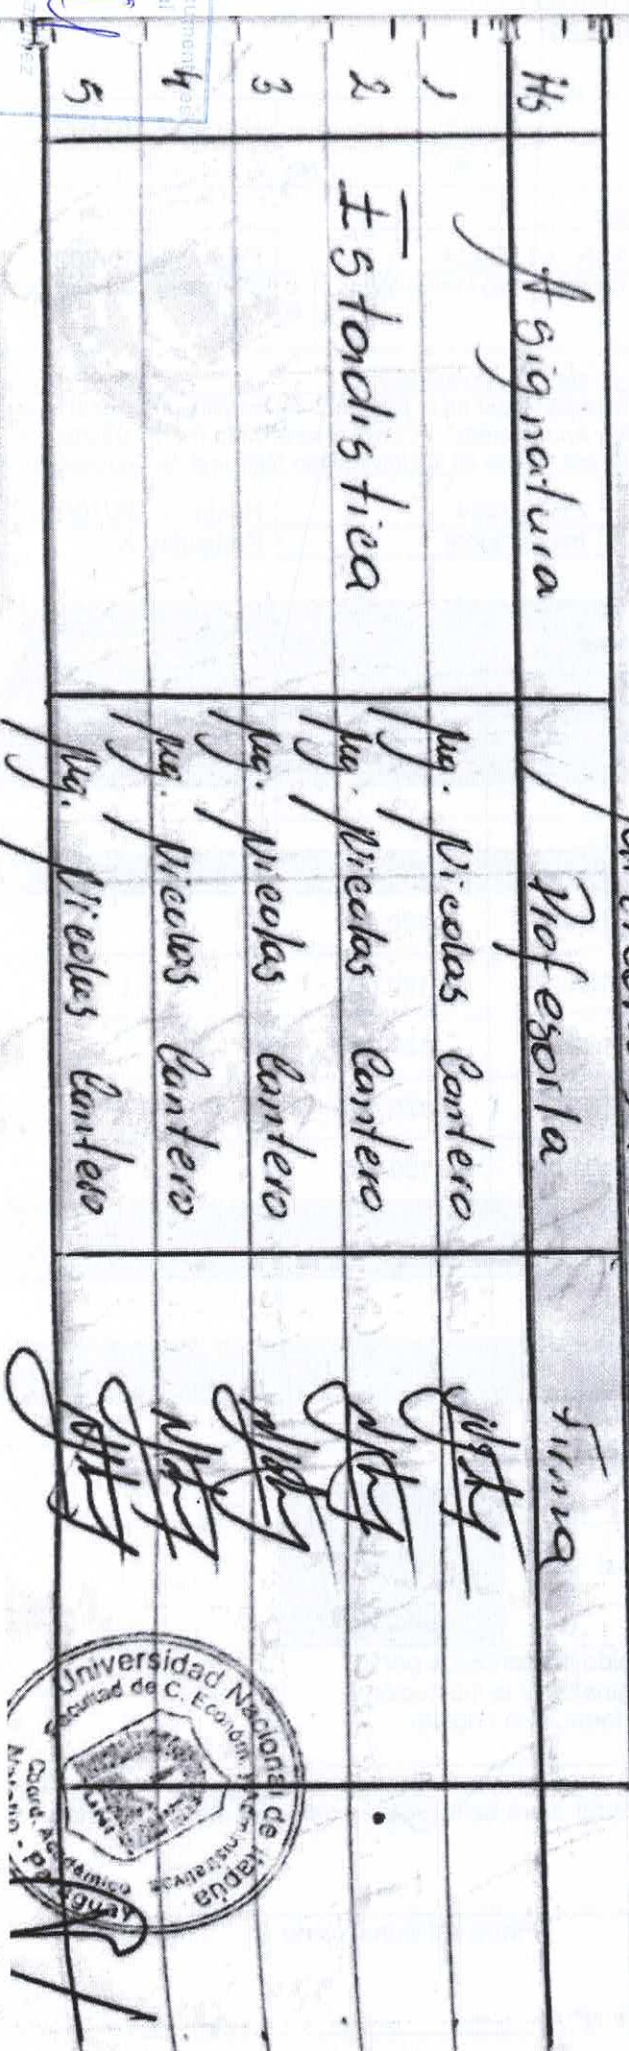 Hs Asignatura Profesor/a Firma
1 Mg. Nicolas Cantero
2 Estadistica Mg. Nicolas Cantero
3 Mg. Nicolas Cantero
4 Mg. Nicolas Cantero
5 Mg. Nicolas Cantero
Universidad Nacional de Itapúa
Facultad de C. Económ. y Administrativas
UNI
Coord. Académica
Natalio - Paraguay